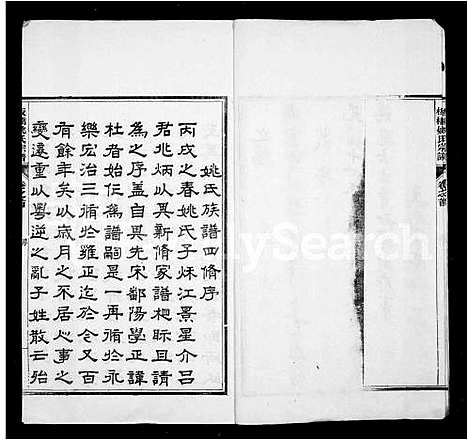 姚氏族譜四脩序
丙戌之春姚氏子秌江景星介呂
君兆炳以其新脩家譜郵眎且請
為之序蓋自其先宋鄱陽學正諱
杜者始仁為譜嗣是一再脩於永
樂宏治三脩於雍正迄於今又百
有餘年矣以歲月之不居人事之
變遷重以粵逆之亂子姓散亡殆
FamilySearch